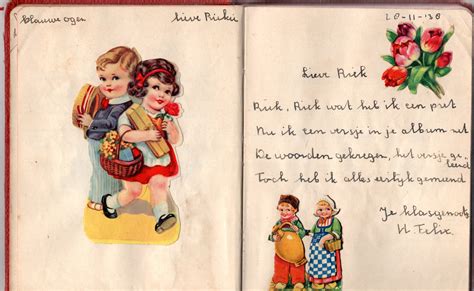 blauwe ogen
lieve Riekie
20-11-'30
Lieve Riek
Riek, Riek wat heb ik een pret
Nu ik een versje in je album zet
De woorden gekregen, het versje ge-
leend
Toch heb ik alles eerlijk gemeend
Je klasgenoot
H Felix.